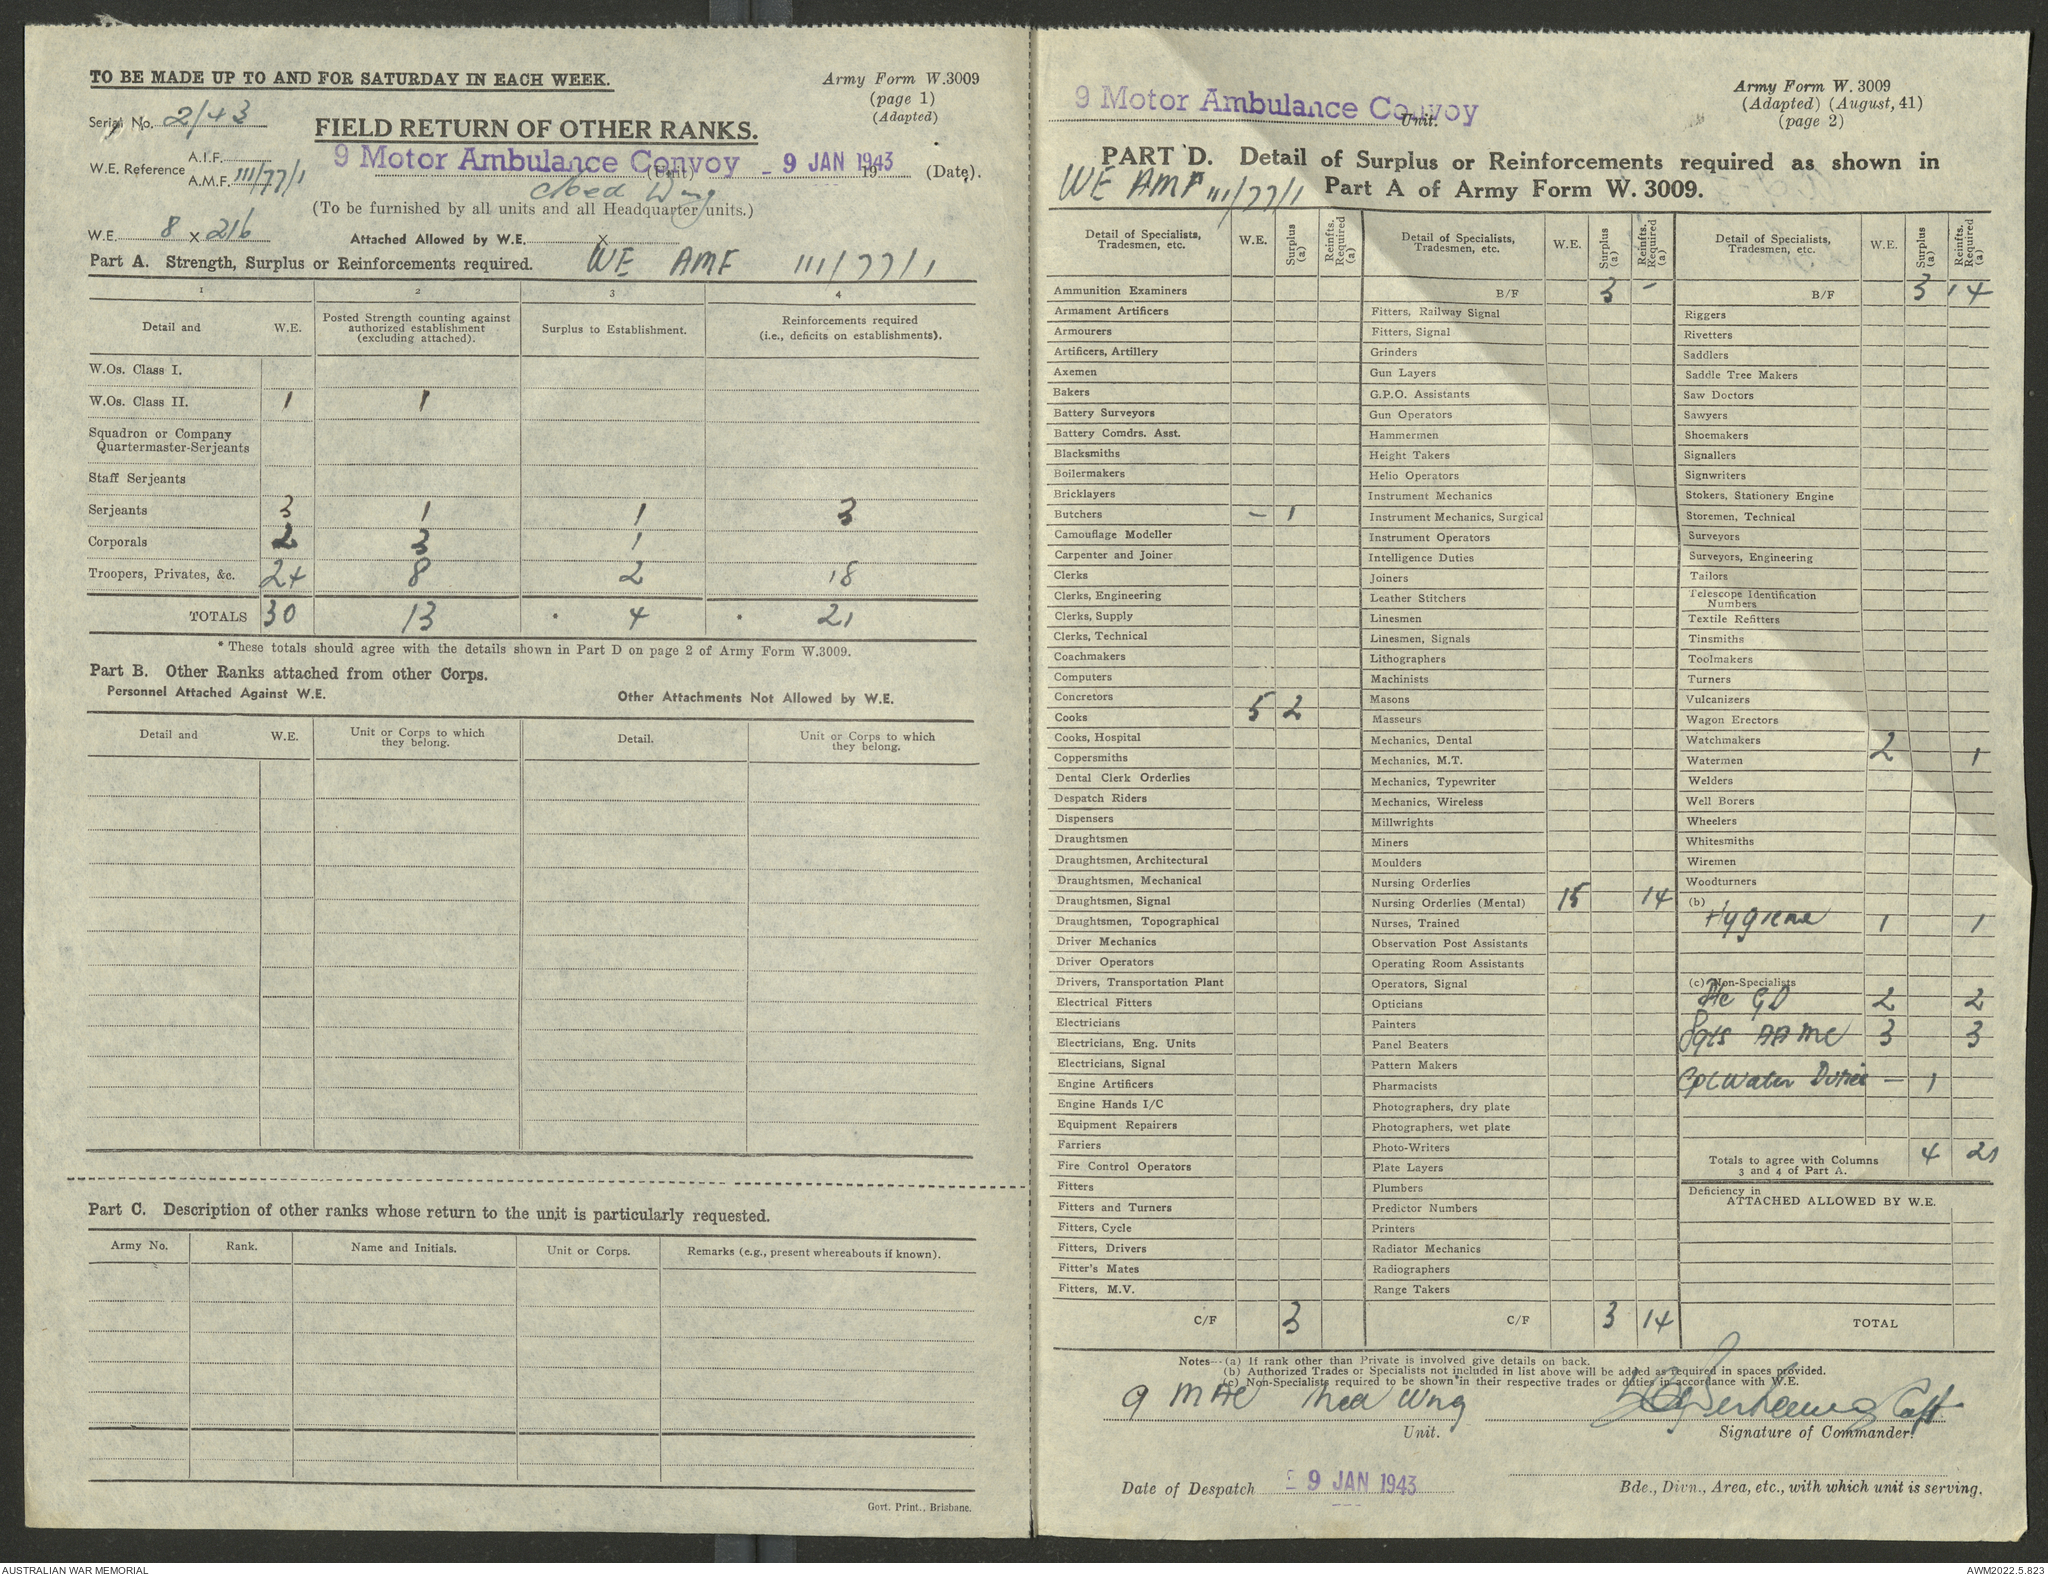 TO BE MADE UP TO AND FOR SATURDAY IN EACH WEEK.
Army Form W.3009
(page 1)
(Adapted)
Serial No. 2/43
FIELD RETURN OF OTHER RANKS.
W.E. Reference A.I.F.
A.M.F. 111/77/1
9 Motor Ambulance Convoy (Unit) - 9 JAN 1943 19 (Date).
Med Wing
(To be furnished by all units and all Headquarter units.)
W.E. 8 x 216
Attached Allowed by W.E. x
Part A. Strength, Surplus or Reinforcements required. WE AMF 111/77/1
1 2 3 4
Detail and W.E. Posted Strength counting against authorized establishment (excluding attached). Surplus to Establishment. Reinforcements required (i.e., deficits on establishments).
W.Os. Class I.
W.Os. Class II. 1 1
Squadron or Company
Quartermaster-Serjeants
Staff Serjeants
Serjeants 3 1 1 3
Corporals 2 3 1
Troopers, Privates, &c. 24 8 2 18
TOTALS 30 13 * 4 * 21
* These totals should agree with the details shown in Part D on page 2 of Army Form W.3009.
Part B. Other Ranks attached from other Corps.
Personnel Attached Against W.E. Other Attachments Not Allowed by W.E.
Detail and W.E. Unit or Corps to which they belong. Detail. Unit or Corps to which they belong.
Part C. Description of other ranks whose return to the unit is particularly requested.
Army No. Rank. Name and Initials. Unit or Corps. Remarks (e.g., present whereabouts if known).
Govt. Print., Brisbane.
9 Motor Ambulance Convoy Unit.
Army Form W. 3009
(Adapted) (August, 41)
(page 2)
PART D. Detail of Surplus or Reinforcements required as shown in
WE AMF 111/77/1 Part A of Army Form W. 3009.
Detail of Specialists, Tradesmen, etc. W.E. Surplus (a) Reinfts. Required (a)
Ammunition Examiners
Armament Artificers
Armourers
Artificers, Artillery
Axemen
Bakers
Battery Surveyors
Battery Comdrs. Asst.
Blacksmiths
Boilermakers
Bricklayers
Butchers - 1
Camouflage Modeller
Carpenter and Joiner
Clerks
Clerks, Engineering
Clerks, Supply
Clerks, Technical
Coachmakers
Computers
Concretors
Cooks 5 2
Cooks, Hospital
Coppersmiths
Dental Clerk Orderlies
Despatch Riders
Dispensers
Draughtsmen
Draughtsmen, Architectural
Draughtsmen, Mechanical
Draughtsmen, Signal
Draughtsmen, Topographical
Driver Mechanics
Driver Operators
Drivers, Transportation Plant
Electrical Fitters
Electricians
Electricians, Eng. Units
Electricians, Signal
Engine Artificers
Engine Hands I/C
Equipment Repairers
Farriers
Fire Control Operators
Fitters
Fitters and Turners
Fitters, Cycle
Fitters, Drivers
Fitter's Mates
Fitters, M.V.
C/F 3
Detail of Specialists, Tradesmen, etc. W.E. Surplus (a) Reinfts. Required (a)
B/F 3 -
Fitters, Railway Signal
Fitters, Signal
Grinders
Gun Layers
G.P.O. Assistants
Gun Operators
Hammermen
Height Takers
Helio Operators
Instrument Mechanics
Instrument Mechanics, Surgical
Instrument Operators
Intelligence Duties
Joiners
Leather Stitchers
Linesmen
Linesmen, Signals
Lithographers
Machinists
Masons
Masseurs
Mechanics, Dental
Mechanics, M.T.
Mechanics, Typewriter
Mechanics, Wireless
Millwrights
Miners
Moulders
Nursing Orderlies
Nursing Orderlies (Mental) 15 14
Nurses, Trained
Observation Post Assistants
Operating Room Assistants
Operators, Signal
Opticians
Painters
Panel Beaters
Pattern Makers
Pharmacists
Photographers, dry plate
Photographers, wet plate
Photo-Writers
Plate Layers
Plumbers
Predictor Numbers
Printers
Radiator Mechanics
Radiographers
Range Takers
C/F 3 14
Detail of Specialists, Tradesmen, etc. W.E. Surplus (a) Reinfts. Required (a)
B/F 3 14
Riggers
Rivetters
Saddlers
Saddle Tree Makers
Saw Doctors
Sawyers
Shoemakers
Signallers
Signwriters
Stokers, Stationery Engine
Storemen, Technical
Surveyors
Surveyors, Engineering
Tailors
Telescope Identification
Numbers
Textile Refitters
Tinsmiths
Toolmakers
Turners
Vulcanizers
Wagon Erectors
Watchmakers
Watermen 2 1
Welders
Well Borers
Wheelers
Whitesmiths
Wiremen
Woodturners
(b)
Hygiene 1 1
(c) Non-Specialists
Pte GD 2 2
Sgts AAMC 3 3
Cpl Water Duties - 1
Totals to agree with Columns 3 and 4 of Part A. 4 21
Deficiency in
ATTACHED ALLOWED BY W.E.
TOTAL
Notes—(a) If rank other than Private is involved give details on back.
(b) Authorized Trades or Specialists not included in list above will be added as required in spaces provided.
(c) Non-Specialists required to be shown in their respective trades or duties in accordance with W.E.
9 MAC Med Wing Capt
Unit. Signature of Commander.
Date of Despatch - 9 JAN 1943
Bde., Divn., Area, etc., with which unit is serving.
AUSTRALIAN WAR MEMORIAL
AWM2022.5.823